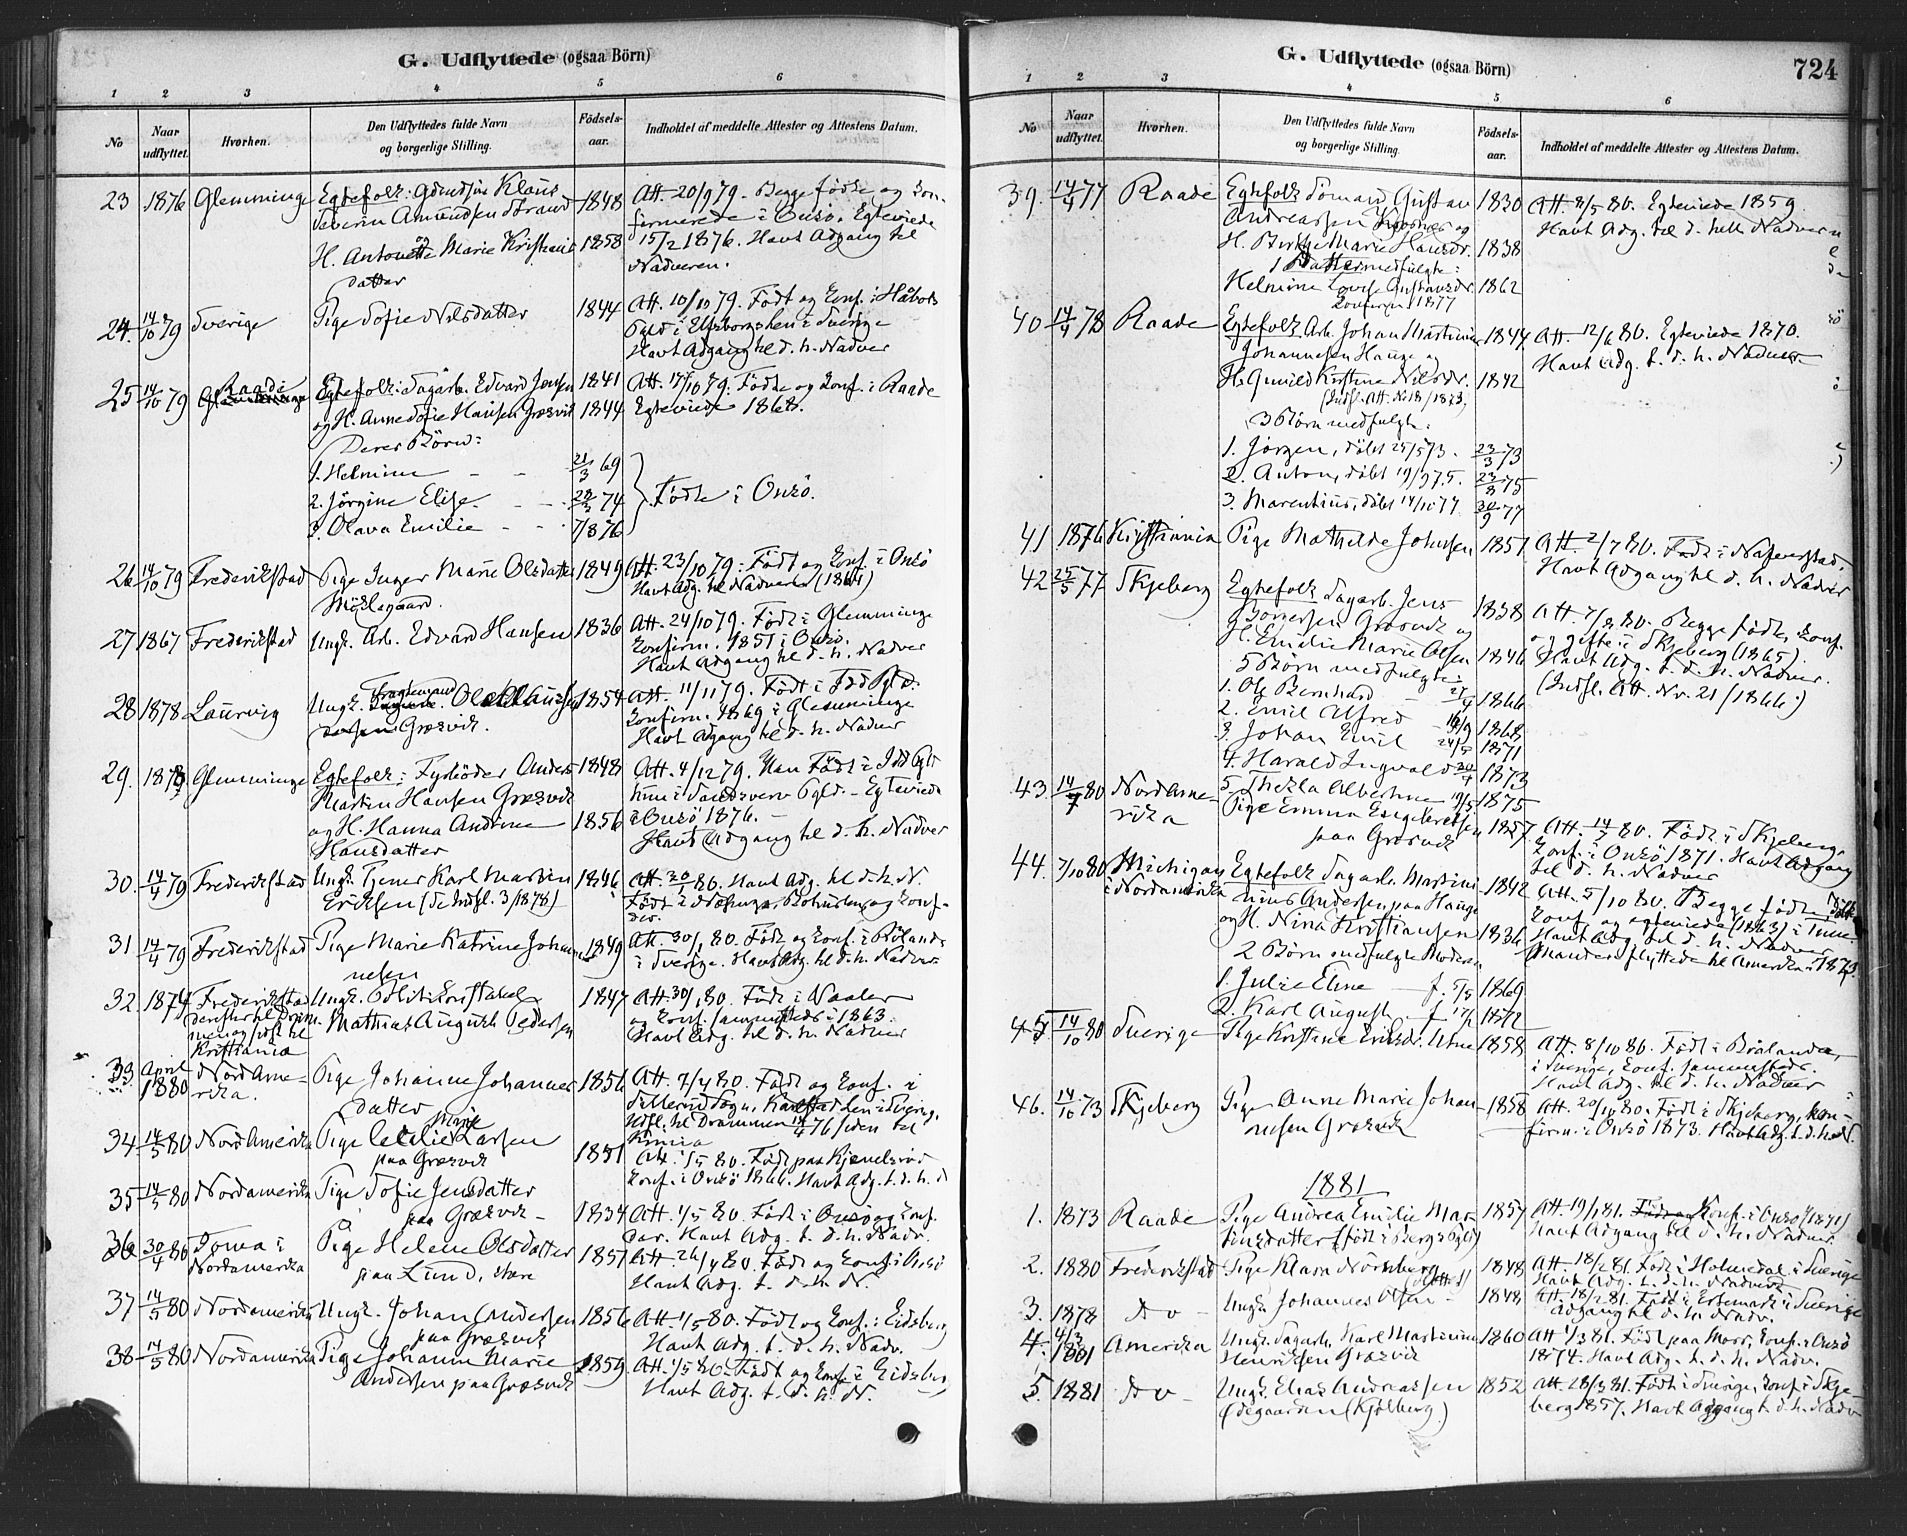 G. Udflyttede (ogsaa Börn)
1 2 3 4 5 6
No
Naar udflyttet.
Hvorhen.
Den Udflyttedes fulde Navn og borgerlige Stilling.
Födsels-aar.
Indholdet af meddelte Attester og Attestens Datum.
23 1876 Glemminge Egtefolk: Klaus 1848 Att. 20/9 79. Begge födte og kon-
Severin Amundsen Strand firmerede i Onsö. Egteviede
og H. Antonette Marie Kristians 1858 15/2 1876. Havt Adgang til
datter Nadveren.
24. 14/10 79 Sverige Pige Sofie Nilsdatter 1844 Att. 10/10 79. Födt og Konf. i Håbols
Pgld i Elfsborgs len i Sverige
Havt Adgang til d. h. Nadver
25 14/10 79 Raade Egtefolk: Dagarb. Edvard Jensen 1841 Att. 14/10 79. Födte og Konf. i Raade
og H. Anne Sofie Hansen Græsvik 1844 Egteviede 1868.
Deres Börn:
1. Helmine - - 21/3 69
2. Jörgine Elise - - 74 Födte i Onsö.
3. Olava Emilie - - 7/8 76
26 14/10 79 Frederikstad Pige Inger Marie Olsdatter 1849 Att. 23/10 79. Födt og Konf. i Onsö
Havt Adg. til Nadveren (1864)
27 1867 Frederikstad Ungk. Arb. Edvard Hansen 1836 Att. 24/10 79. Födt i Glemminge
Konfirm. 1851 i Onsö.
Havt Adgang til d. h. Nadver
28 1878 Laurvig Ungk. Ole Græsvik. 1854 Att. 11/11 79. Födt i Idd Pgld.
Konfirm. 1869 i Glemminge
Havt Adgang til d. h. Nadver
29. Glemminge Egtefolk: Fyrböder Anders 1848 Att. 4/12 79. Han Födt i Idd Pgld
Martin Hansen Græsvik hun i Sandsverv Pgld. - Egteviede
og H. Hanna Andrine 1856 i Onsö 1876. -
Hansdatter Havt Adgang til d. h. Nadver
30. 14/4 79 Frederikstad Ungk. Tjener Karl Martin 1846 Att. 80. Havt Adg. til d. h. N.
Eriksen (se Indfl. 3/1878) Födt i og Konf-
31 14/4 79 Frederikstad Pige Marie Katrine Johan- 1849 Att. 30/1 80. Födt og Konf. i
nesen i Sverige. Havt Adg. til d. h. Nadver
32. 1874 Frederikstad Ungk. 1847 Att. 30/1 80. Födt i
derefter til Dram- Mathias August Pedersen og Konf. sammesteds i 1863.
men og sidst til Havt Adg. til d. h. Nadver
Kristiania
33 April 1880 Nordame- Pige Johanne Johannes 1856 Att. 7/4 80. Födt og Konf. i
rika. datter Sogn, Karlstad len i Sverig.
Indfl. til Drammen 76 siden til
34 14/5 80 Nordamerika Pige Marie Larsen 1851 Att. 1/5 80. Födt paa
paa Græsvik Konf. i Onsö 1866. Havt Adg. t. d. h. N
35 14/5 80 Nordamerika Pige Sofie Jensdatter 1834 Att. 1/5 80. Födt i Onsö og Konf.
paa Græsvik - der. Havt Adg. t. d. h. Nadv.
36 30/4 80 Iowa i Pige Helene Olsdatter 1851 Att. 26/4 80. Födt og Konf. i Onsö
Nordamerika paa Lund, Havt Adg. t. d. h. N.
37 14/5 80 Nordamerika Ungk. Johan Andersen 1856 Att. 1/5 80. Födt og Konf. i Eidsberg
paa Græsvik Havt Adg. t. d. h. Nadv.
38 14/5 80 Nordamerika Pige Johanne Marie 1859 Att. 1/5 80. Födt og Konf. i Eidsberg
Andersen paa Græsvik Havt Adg. t. d. h. N.
G. Udflyttede (ogsaa Börn)
724
1 2 3 4 5 6
No
Naar udflyttet.
Hvorhen.
Den Udflyttedes fulde Navn og borgerlige Stilling.
Födsels-aar.
Indholdet af meddelte Attester og Attestens Datum.
39. 14/4 77 Raade Egtefolk Sömand Gustav 1830 Att. 8/5 80. Egteviede 1859
Andreassen og Havt Adg. til d. hell. Nadver
H. Marie Hansdr. 1838
1 Datter medfulgte:
Helmine Lovise Gustavsdr. 1862
Konfirm. 1877
40 14/4 78 Raade Egtefolk Arb. Johan Martinus 1844 Att. 12/6 80. Egteviede 1870.
Johannesen Hauge og Havt Adg. t. d. h. Nadver
H. Gunild Kristine Nilsdr. 1842
(Indfl. Att. No 18/1873)
3 Börn medfulgte:
1. Jörgen, döbt 25/5 73. 23/3 73
2. Anton, döbt 19/9 75. 23/8 75
3. Marentius, döbt 14/10 77 30/9 77
41. 1876 Kristiania Pige Mathilde Johnsen 1857 Att. 2/7 80. Födt i
Havt Adgang til d. h. Nadver
42 25/5 77 Skjeberg Egtefolk Dagarb. Jens 1838 Att. 7/8 80. Begge födte, Konf.
Græsvik og og gifte i Skjeberg (1865)
H. Emilie Marie Olsen 1846 Havt Adg. t. d. h. Nadver.
5 Börn medfulgte: (Indfl. Att. Nr. 21/1866.)
1. Ole Bernhard - 1866
2. Emil Alfred - 1868
3. Johan Emil 24/5 1871
4. Harald Ingvald 1873
5. Thekla Albertine 19/5 1875
43. 80 Nordame- Pige Emma Engebretsen 1857 Att. 80. Födt i Skjeberg
rika paa Græsvik Konf. i Onsö 1871. Havt Adgang
til d. h. Nadver
44. 7/10 80 Michigan Egtefolk Dagarb. Martini- 1842 Att. 5/10 80. Begge födte,
i Nordamerika nius Andersen paa Hauge Konf. og egteviede (1863) i Tune.
og H. Nina Kristiansen 1836 Havt Adg. til d. h. Nadver
2 Börn medfulgte Moderen Manden flyttede til Amerika i 1879.
1. Julie Eline - f. 5/5 1869
2. Karl August - f. 1872
45 14/10 80 Sverige Pige Kristine Eriksdr. 1858 Att. 8/10 80. Födt i
i Sverige, Konf. sammesteds.
Havt Adg. til d. h. Nadver
46. 14/10 73 Skjeberg Pige Anne Marie Johan- 1858 Att. 20/10 80. Födt i Skjeberg, kon-
nesen Græsvik firm. i Onsö 1873. Havt Adg. t. d. h. N.
1881
1. 1873 Raade Pige Andrea Emilie Mar- 1857 Att. 19/1 81. Konf. i Onsö (1871)
tinsdatter (födt i Bergs Pgld) Havt Adgang til d. h. Nadver.
2. 1880 Frederikstad Pige Klara 1848 Att. 18/2 81. Födt i Holmedal i Sverige
Havt Adg. t. d. h. Nadver
3. 1878 Do - Ungk. Johannes Olsen - 1848 Att. 18/2 81. Födt i i Sverige
Adgang til d. h. Nadv.
4. 4/3 1881 Amerika Ungk. Dagarb. Karl Martinius 1860 Att 1/3 81. Födt paa Moss, Konf. i Onsö
Henriksen Græsvik 1874. Havt Adg. t. d. h. Nadv.
5. 1881 Do - Ungk. Elias Andreassen 1852 Att. 28/3 81. Födt i Sverige, Konf. i Skje-
Ödegaarden (Kjölberg) berg 1857. Havt Adgang t. d. h. Nadv